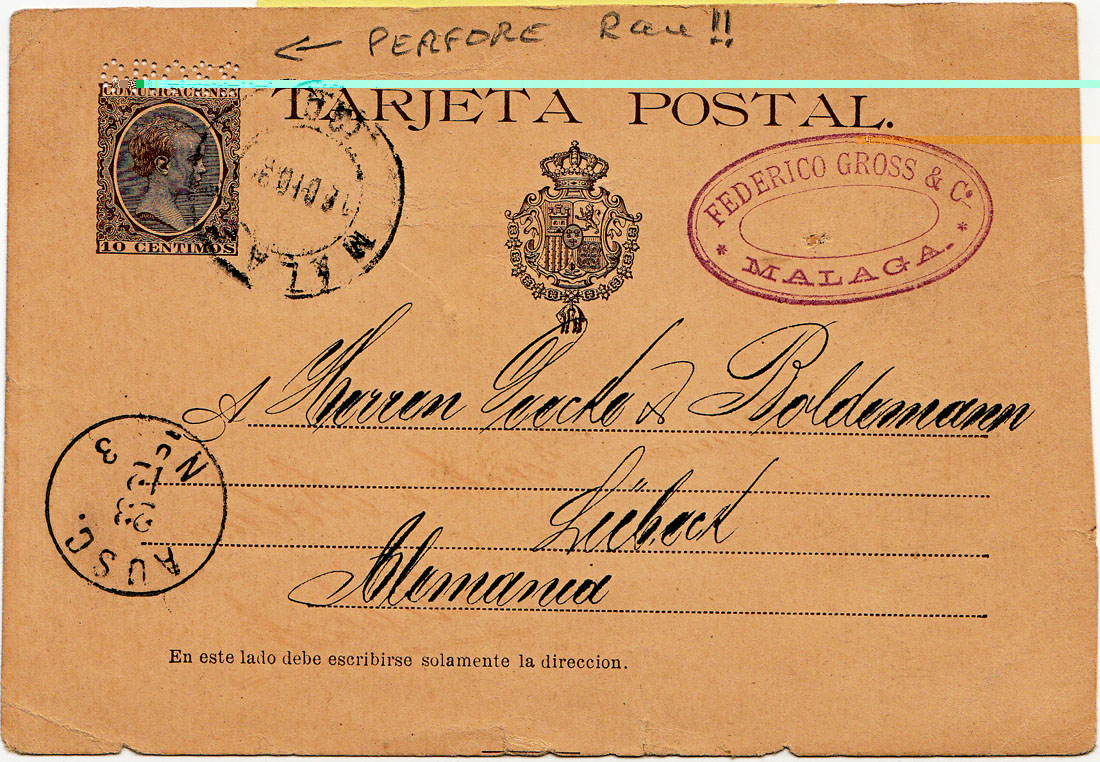 ← PERFORE Rau !!
COMUNICACIONES
TARJETA POSTAL.
10 CENTIMOS
MALA
FEDERICO GROSS & Co.
* MALAGA. *
A Herren Goecke & Boldemann
Lübeck
Alemania
AUSG. N 3
23
12
En este lado debe escribirse solamente la direccion.